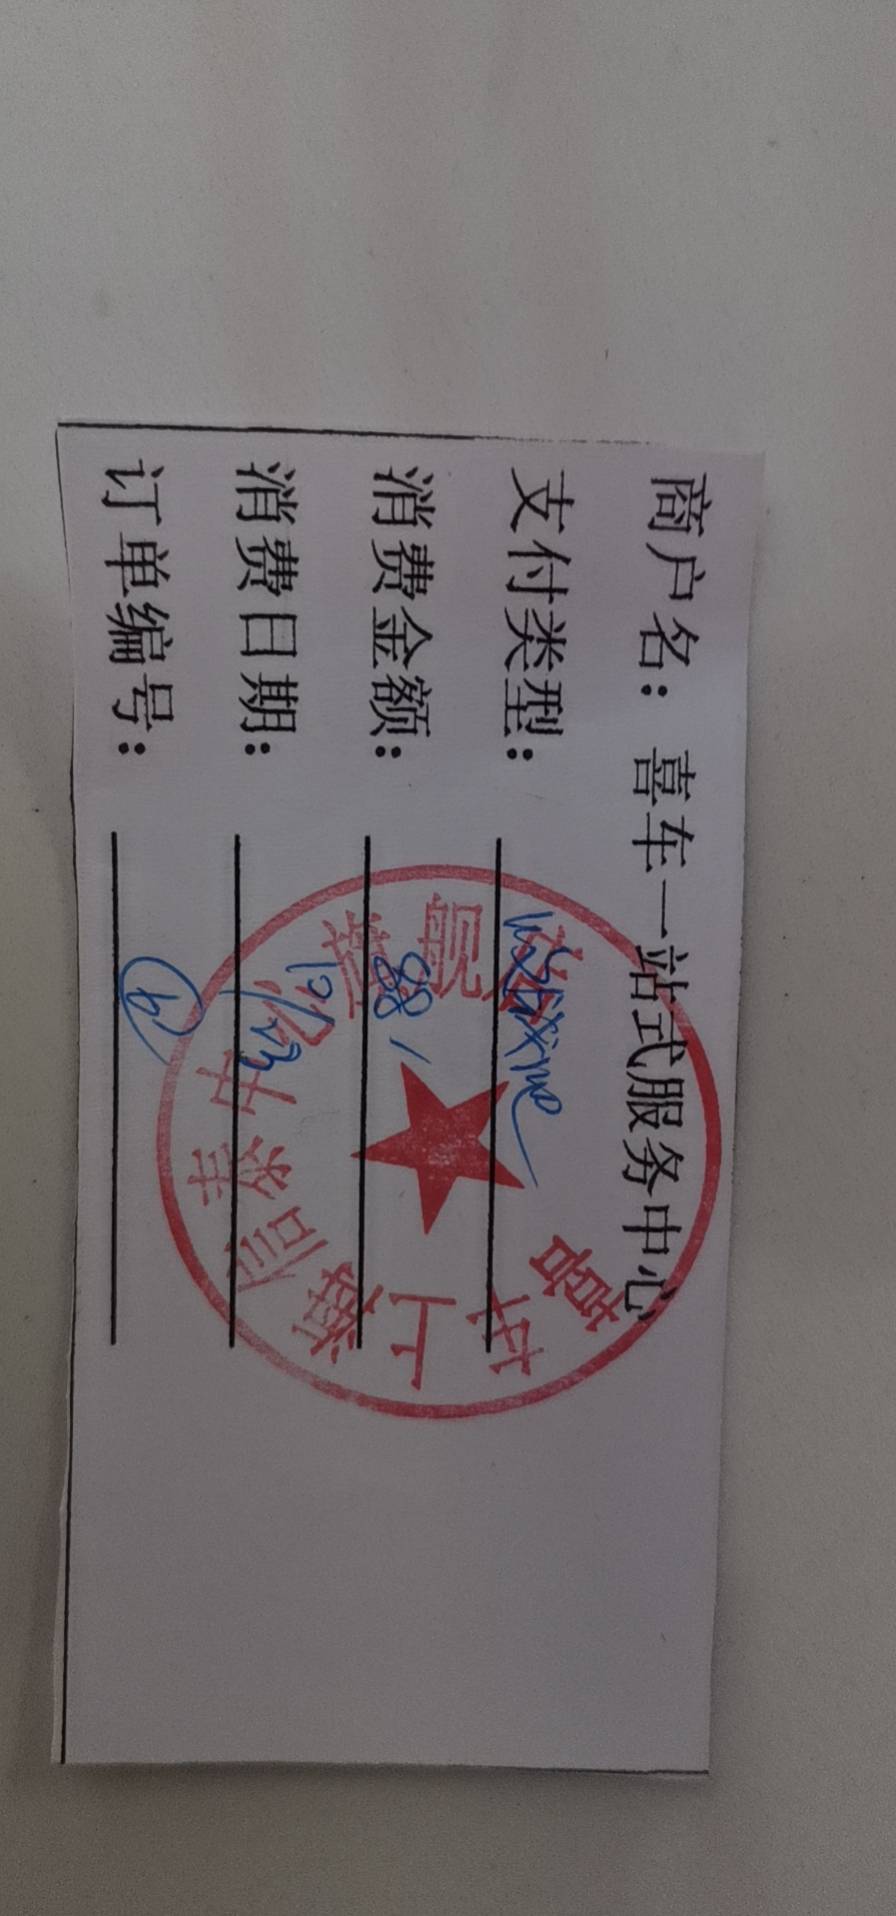 商户名：喜车一站式服务中心
支付类型：
消费金额：88
消费日期：10/23
订单编号：